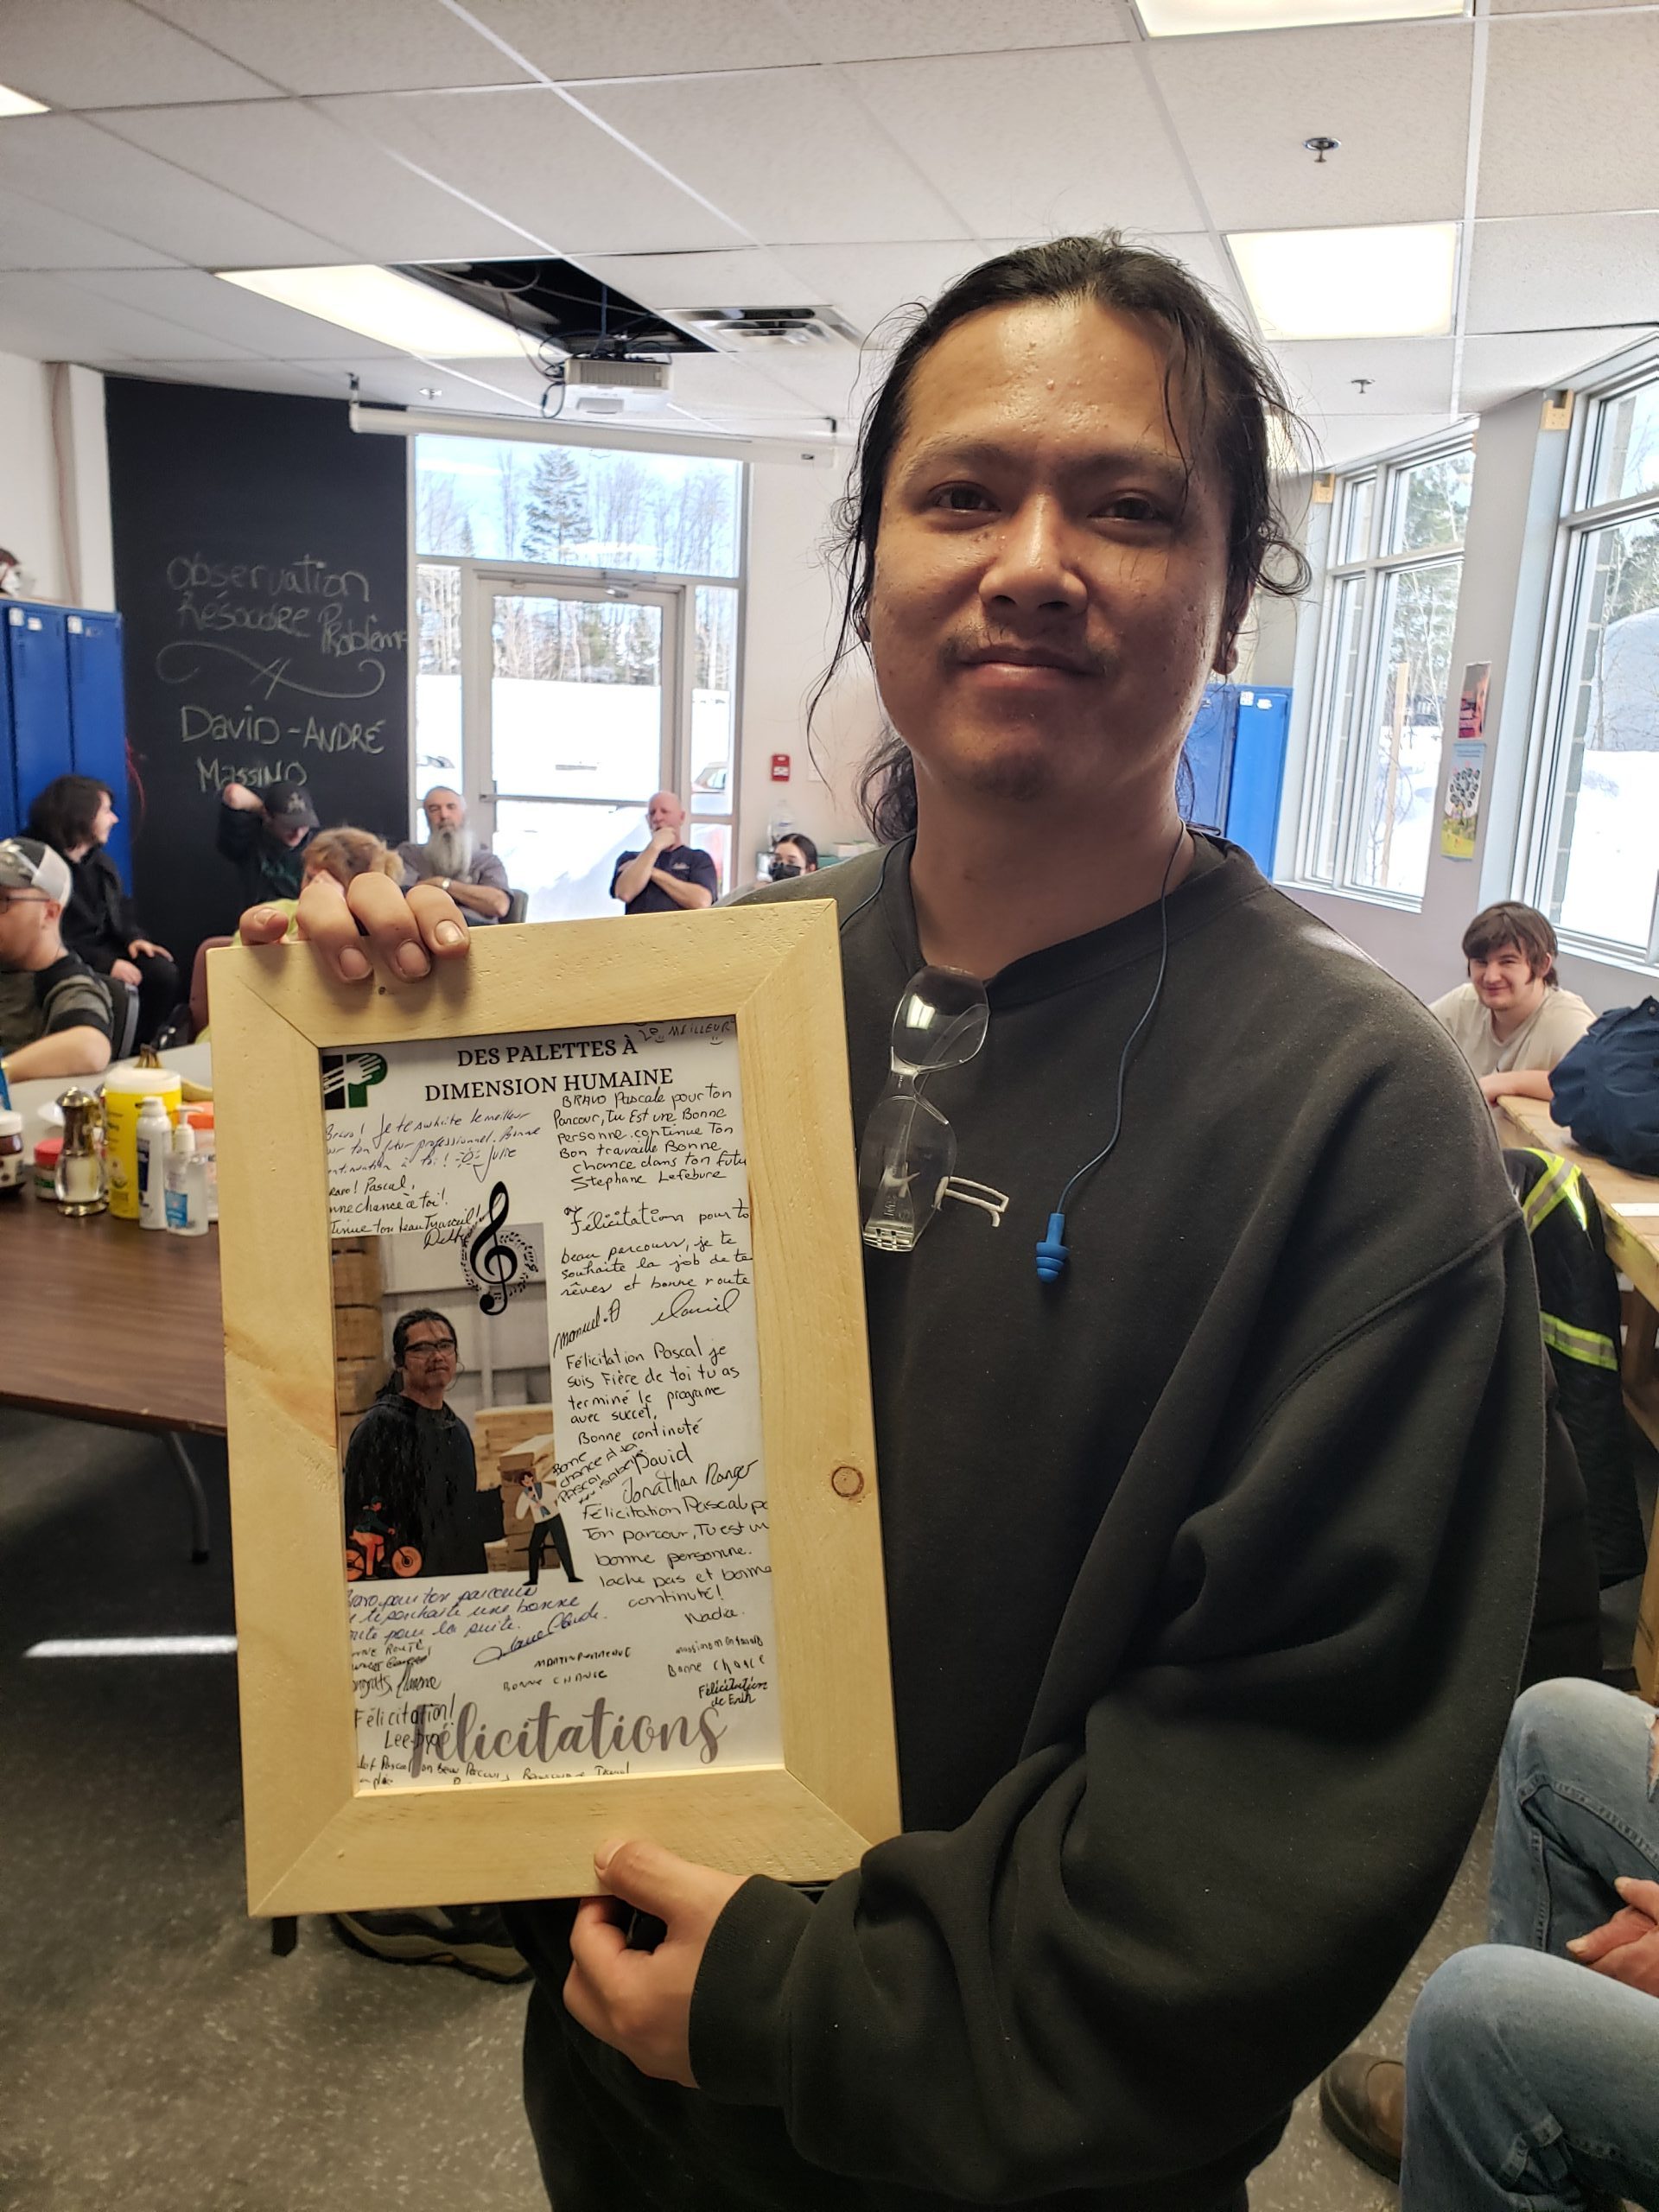 Observation
Résoudre Problèm
David-André
Massimo
DES PALETTES À
DIMENSION HUMAINE
MEILLEUR
Bravo! Je te souhaite le meilleur
ton futur professionnel. Bonne
à toi! Julie
Bravo! Pascal,
chance à toi!
ton beau travail!
BRAVO Pascale pour ton
Parcour, Tu Est une Bonne
personne. continue Ton
Bon travaille Bonne
chance dans ton futu
Stephane Lefebure
Félicitation pour to
beau parcours, je te
souhaite la job de te
rêves et bonne route
Manuel.D Daniel
Félicitation Pascal je
suis Fière de toi tu as
terminé le programe
avec succet,
Bonne continuté
David
Bonne
chance à toi
Pascal
Isabelle
Jonathan Ranger
Félicitation Pascal po
Ton parcour, Tu est un
bonne personne.
lache pas et bonne
continuté!
Nadia.
Bravo pour ton parcours
te souhaite une bonne
route pour la suite.
Route
Bonne chance
Bonne chance
Félicitation
de Erik
Félicitation!
Félicitations
Pascal ton Beau Parcour